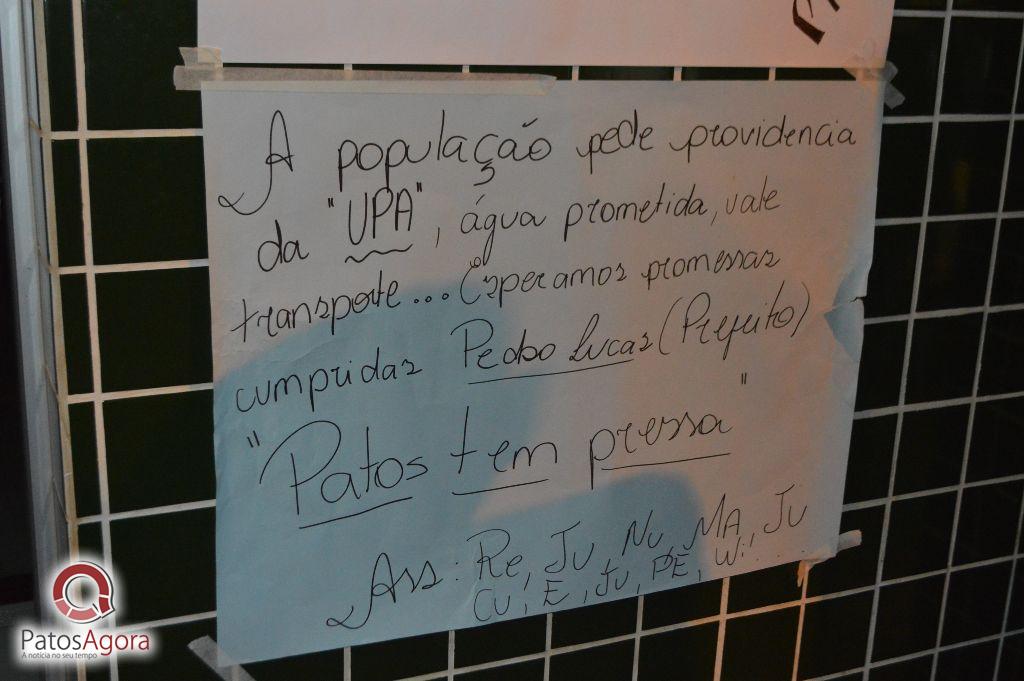 A população pede providencia
da "UPA", água prometida, vale
transporte... Esperamos promessas
cumpridas Pedro Lucas (Prefeito)
"Patos tem pressa"
Ass: Re, Ju, Nu, MA, Ju
Cu, E, Ju, PE, Wi....
PatosAgora
A notícia no seu tempo